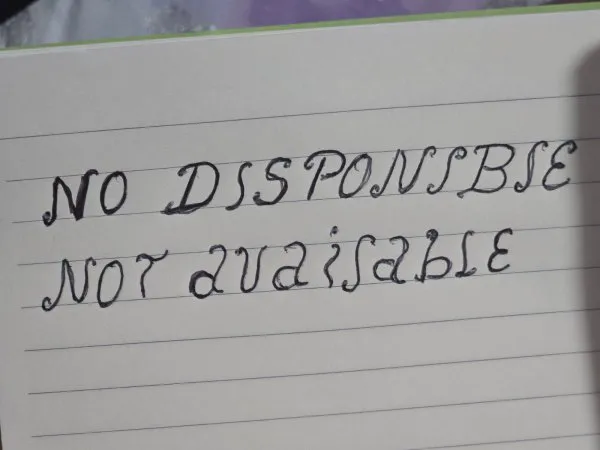 NO DISPONIBLE
NOT avaiLabLE